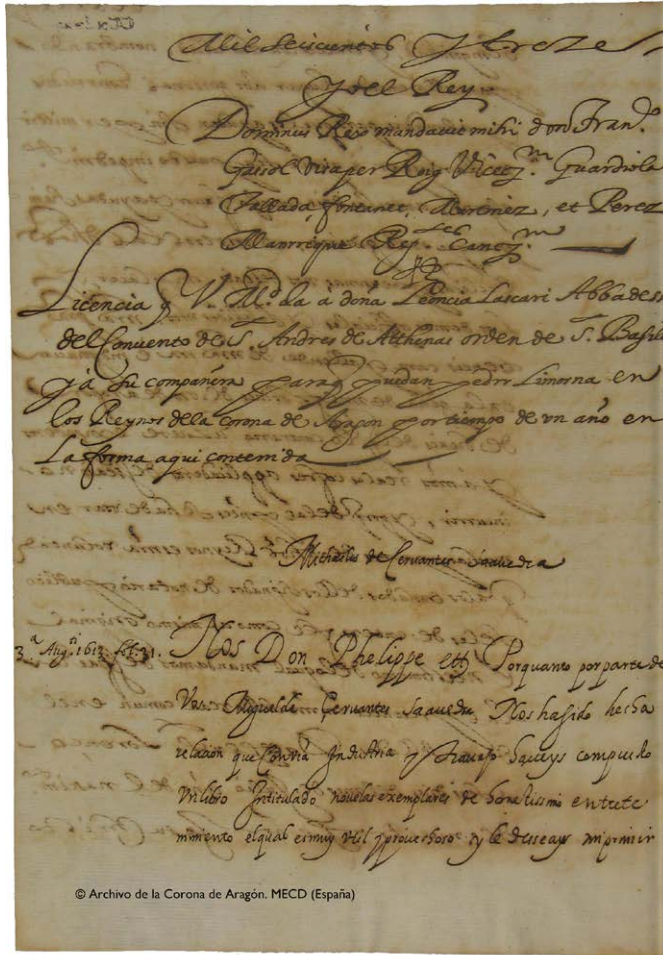 Mil Seiscientos y treze
Yo el Rey
Dominus Rex mandavit mihi don Franco
Gassol visa per Roig Vicecm. Guardiola
Tallada, fontanet, Martinez, et Perez
Manrrique Regtes Cancm.
Licencia q V. Md. da á doña Leoncia Lascari Abbadess
del Convento de St. Andres de Athenas orden de St. Basili
y á su compañera para q puedan pedir Limosna en
los Reynos de la Corona de Aragon por tiempo de vn año en
La forma aqui contenida
Michaelis de Cervantes Saavedra
3a Augti. 1613. 31.
Nos Don Phelippe etc. Por quanto por parte de
Vos Miguel de Cervantes Saavedra Nos ha sido hecha
relacion que con vra Industria y travajo haveys compuesto
vn libro Intitulado novelas exemplares de honestissimo entrete
nimiento el qual es muy vtil y provechoso y le desseays imprimir
© Archivo de la Corona de Aragón. MECD (España)